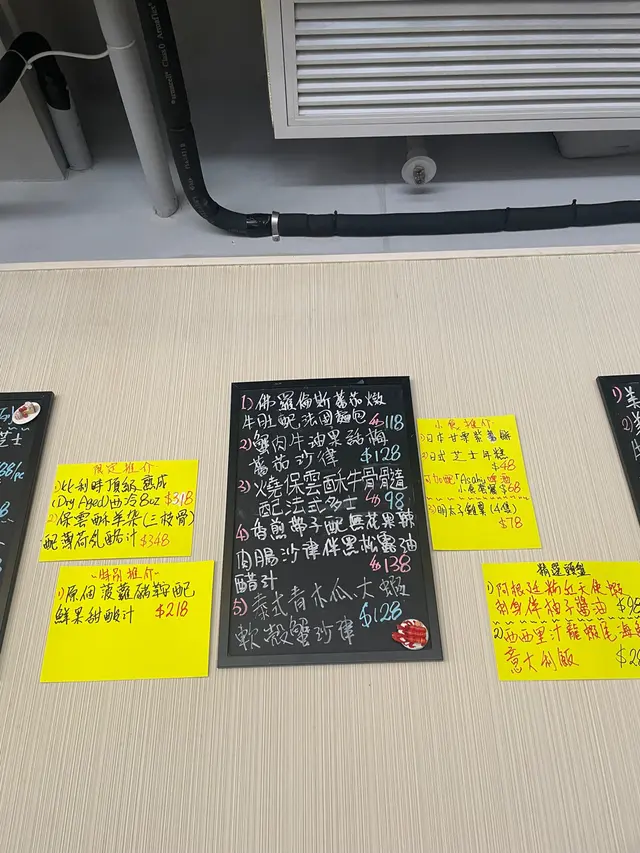 限定推介
1)比利時頂級熟成
(Dry Aged)西冷8oz $318
2)保雲酥羊架(三枝骨)
配薄荷乳酪汁 $348
特別推介
1)原個菠蘿
鮮果甜酸汁 $218
1)佛羅倫斯蕃茄燉
牛肚配法國麵包 $118
2)蟹肉牛油果話梅
蕃茄沙律 $128
3)火燒保雲酥牛骨骨髓
配法式多士 $98
4)香煎帶子配無花果鴨
肉腸沙律伴黑松露油
醋汁 $138
5)泰式青木瓜大蝦
軟殼蟹沙律 $128
小食推介
1)日本甘栗紫薯酥
2)日式芝士年糕
$48
可加配「Asahi」啤酒
小食套餐$68
3)明太子雞翼(4隻)
$78
精選頭盤
1)阿根廷粉紅天使蝦
刺身伴柚子醬油 $98
2)西西里汁龍蝦尾海
意大利飯 $2
芝士
1)
2)